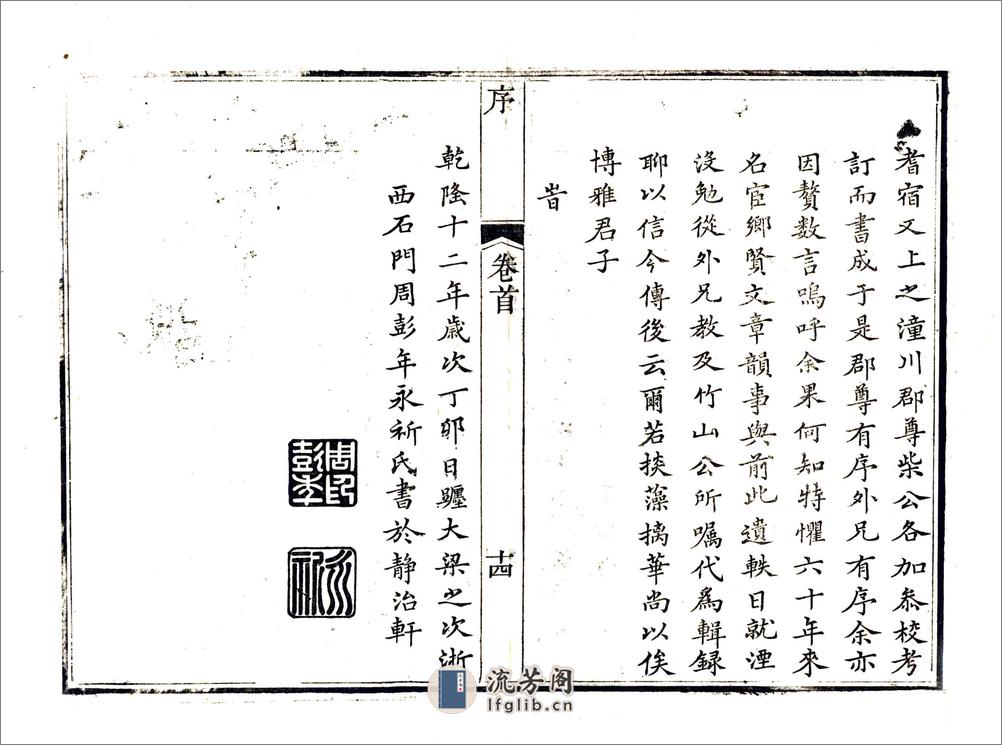 耆宿又上之潼川郡尊柴公各加叅校考
訂而書成于是郡尊有序外兄有序余亦
因贅數言嗚呼余果何知特懼六十年來
名宦鄉賢文章韻事與前此遺軼日就湮
沒勉從外兄教及竹山公所囑代爲輯録
聊以信今傳後云爾若掞藻摛華尚以俟
博雅君子
旹
序
卷首
十四
乾隆十二年歳次丁卯日躔大梁之次浙
西石門周彭年永祈氏書於静治軒
周印彭年
永祈
流芳阁
lfglib.cn